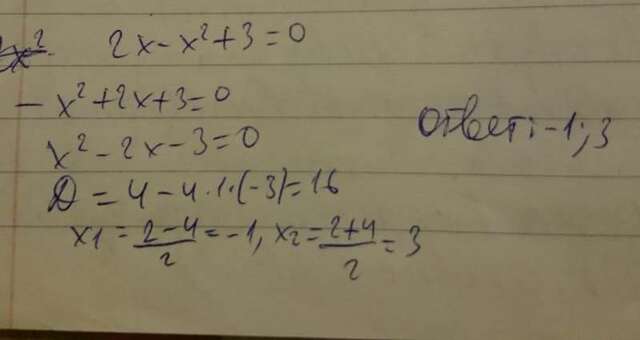 2x - x² + 3 = 0
- x² + 2x + 3 = 0
x² - 2x - 3 = 0
D = 4 - 4·1·(-3) = 16
x1 = (2-4)/2 = -1, x2 = (2+4)/2 = 3
Ответ: -1; 3